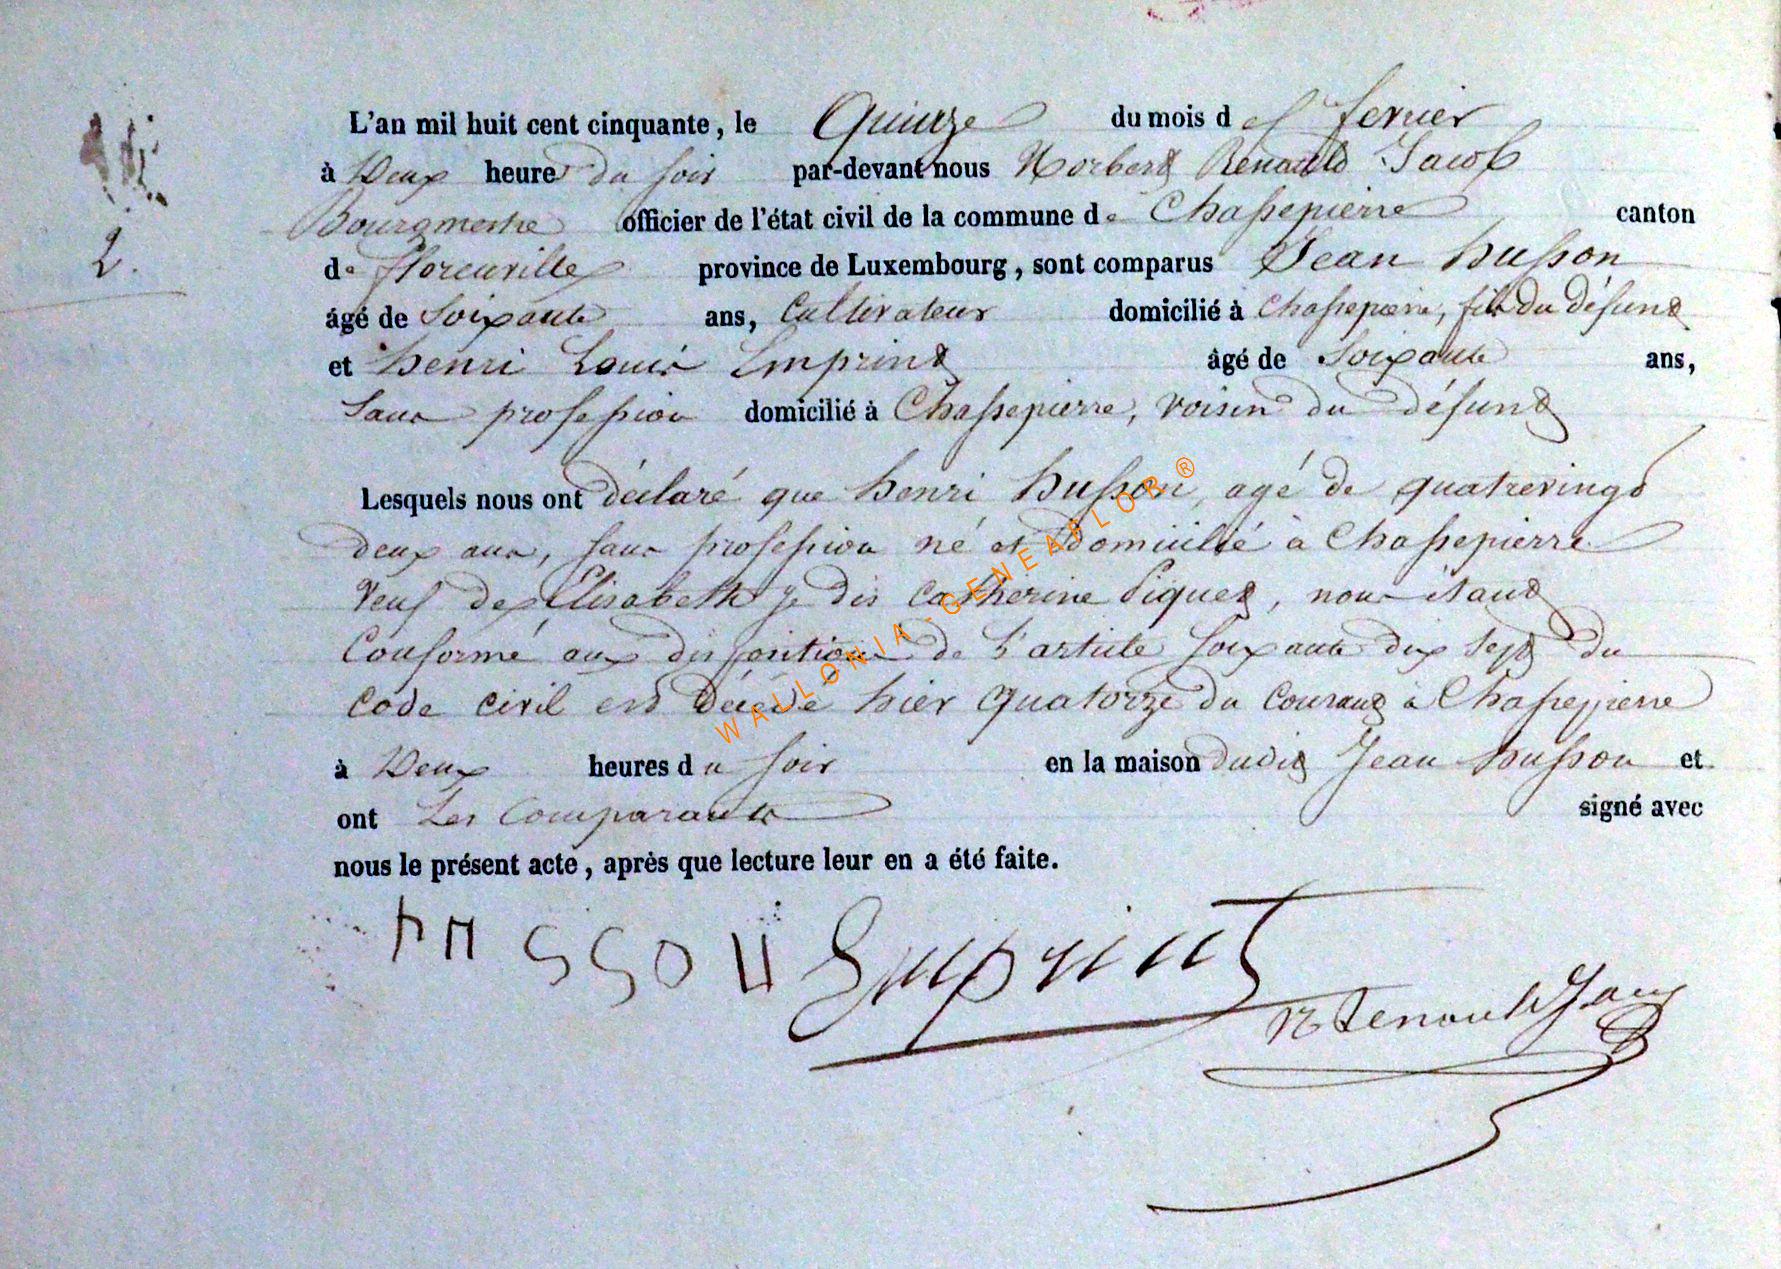 L'an mil huit cent cinquante, le Quinze du mois de fevrier
à Deux heures du soir par-devant nous Norbert Renauld Jacob
Bourgmestre officier de l'état civil de la commune de Chassepierre canton
de florenville province de Luxembourg, sont comparus Jean husson
âgé de Soixante ans, Cultivateur domicilié à Chassepierre, fils du défunt
et henri Louis Emprint âgé de Soixante ans,
Sans profession domicilié à Chassepierre, voisin du défunt
Lesquels nous ont déclaré que henri husson, agé de quatrevingt
deux ans, sans profession né et domicilié à Chassepierre
veuf de Elisabeth je dis Catherine Piquet, nous étant
Conformé aux dispositions de l'article soixante dix sept du
Code civil est décédé hier quatorze du Courant à Chassepierre
à Deux heures du soir en la maison dudit Jean husson et
ont Les Comparants signé avec
nous le présent acte, après que lecture leur en a été faite.
2.
Emprint
WALLONIA-GENEAFLOR ®